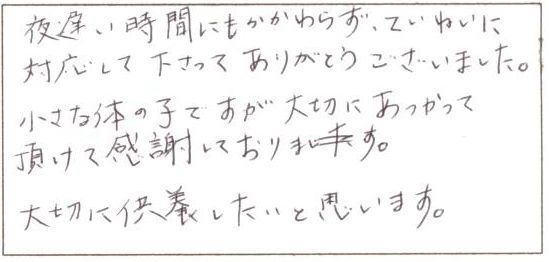 夜遅い時間にもかかわらず、ていねいに
対応して下さってありがとうございました。
小さな体の子ですが大切にあつかって
頂けて感謝しております。
大切に供養したいと思います。